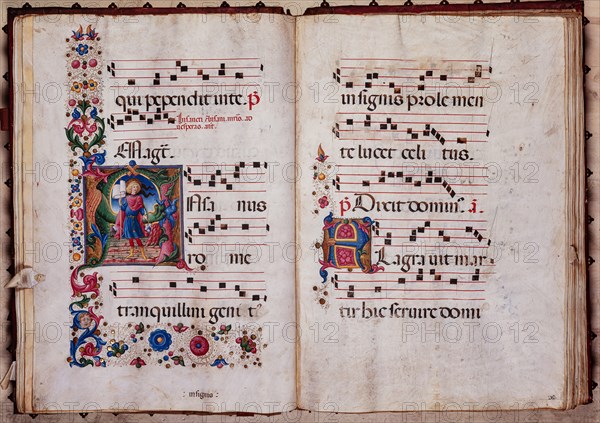 qui pependit in te. p̄
In sancti Ansani. mris. ad
vesperas. ant.
Magt̄.
Ansa nus
ro me
tranquillum geni te
: insignis :
insignis prole men
te lucet celi tus.
p̄ Dixit dominus. a̅.
Flagra uit mar
tir hic seruire domi
PHOTO12